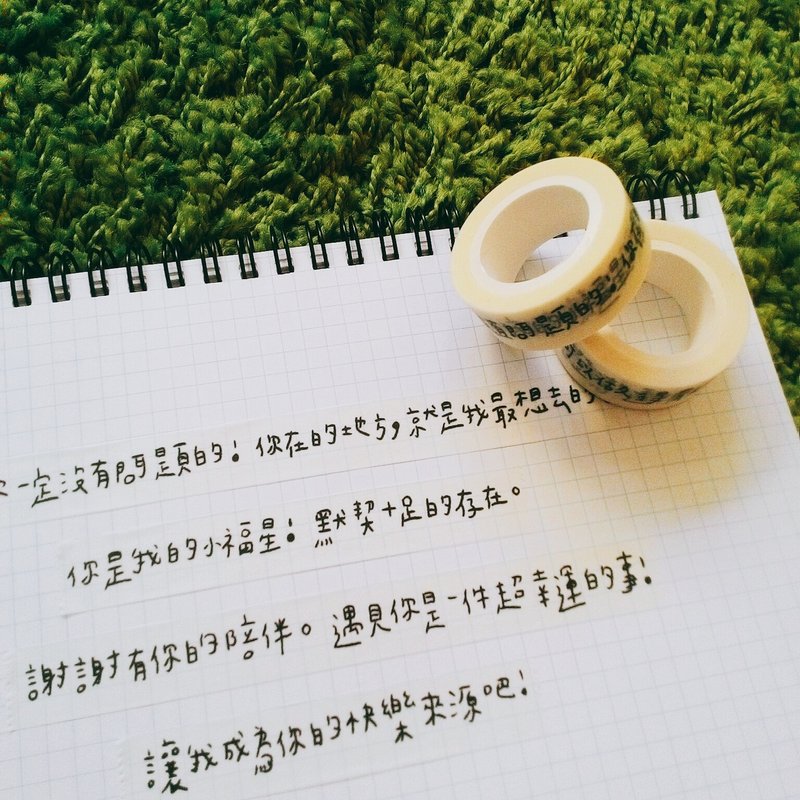 有問題的!
一定沒有問題的!你在的地方,就是我最想去的
你是我的小福星!默契十足的存在。
謝謝有你的陪伴。遇見你是一件超幸運的事!
讓我成為你的快樂來源吧!